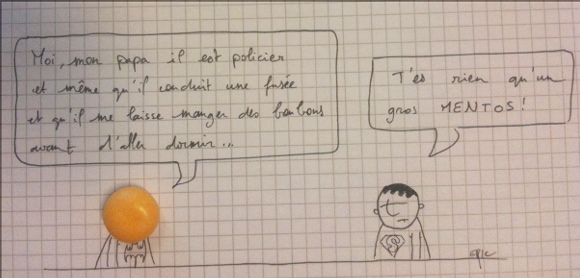 Moi, mon papa il est policier
et même qu'il conduit une fusée
et qu'il me laisse manger des bonbons
avant d'aller dormir...
T'es rien qu'un
gros MENTOS!